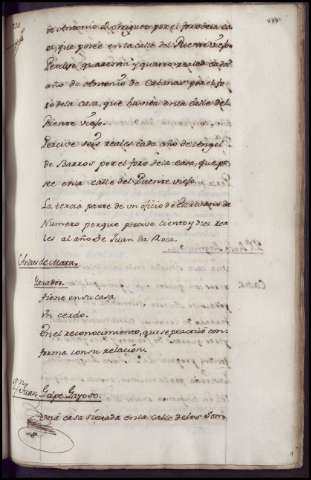 de Antonio Rodriguez por el foro de la ca
sa, que posee en la calle del Puente viejo.
Percive quarenta y quatro reales cada
año de Antonio de Cabanas por el fo
ro de la casa, que havita en la calle del
Puente viejo.
Percive seis reales cada año de Angel
de Barros por el foro de la casa, que po
see en la calle del Puente viejo.
La tercia parte de un oficio de Escribano de
Numero porque percive ciento y diez rea
les al año de Juan da Roca.
Criau de Mara.
Ganados.
tiene en su casa
Un cerdo.
En el reconocimiento, que se practicó con
forma con su relacion.
Juan Lope Gayoso.
Una casa situada en la calle de los